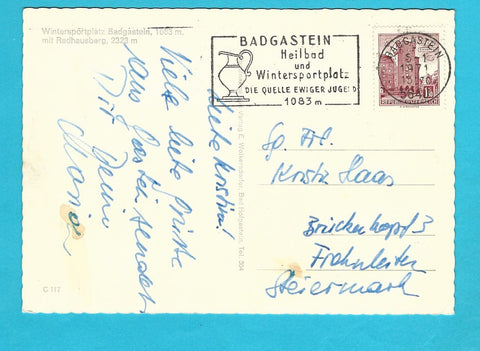 Wintersportplatz Badgastein, 1083 m,
mit Radhausberg, 2323 m
BADGASTEIN
Heilbad
und
Wintersportplatz
DIE QUELLE EWIGER JUGEND
1083 m
BADGASTEIN
5640
REPUBLIK ÖSTERREICH
Liebe Kristina!
Viele liebe Grüsse
aus Gastein sendet
Dir Deine
Maria
Sp. Frl.
Krista Haas
Brückenkopf 3
Frohnleiten
Steiermark
C 117